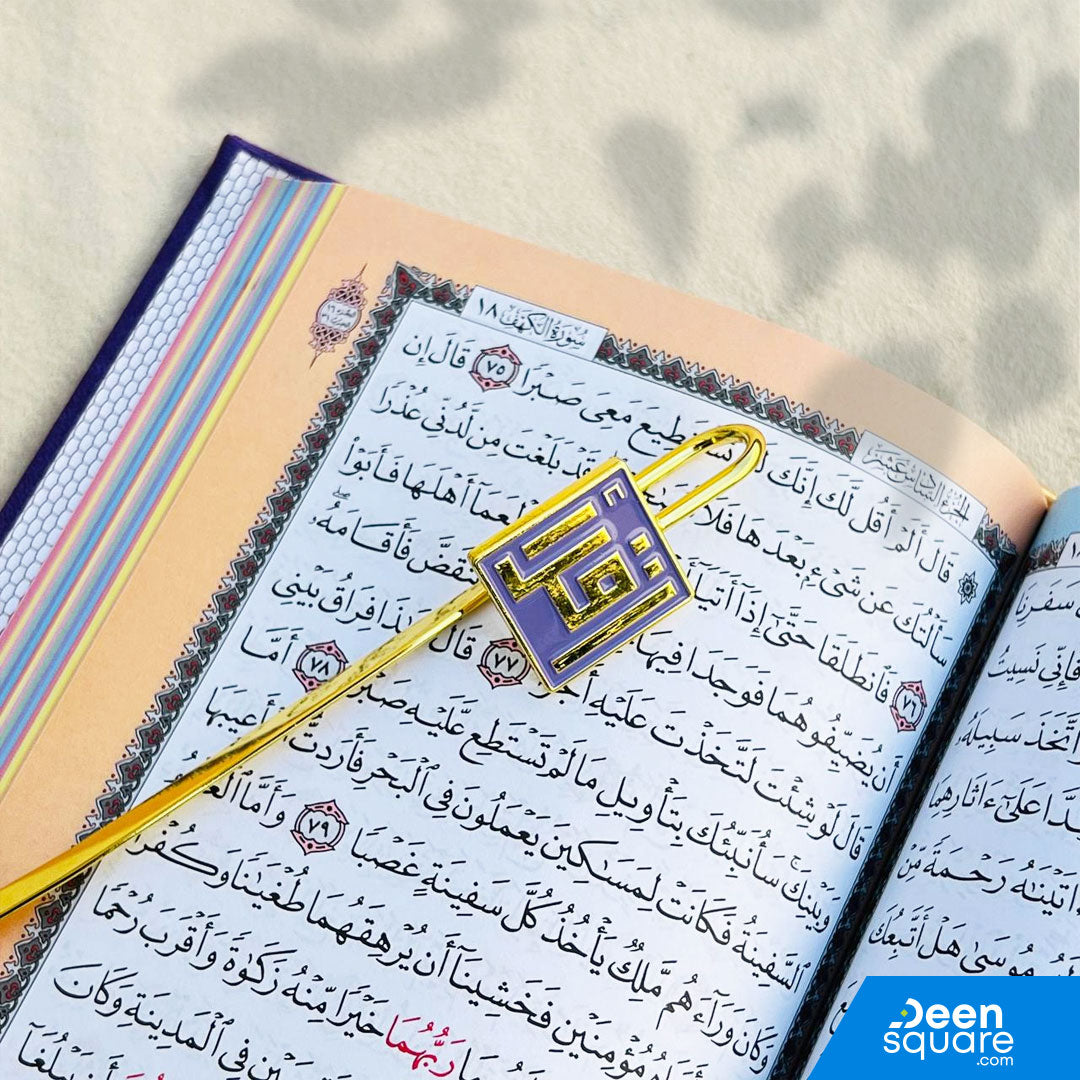 سُورَةُ الكَهْفِ ١٨
الجُزْءُ السَّادِسَ عَشَرَ
۞ قَالَ أَلَمْ أَقُل لَّكَ إِنَّكَ مَعِىَ صَبْرًا ٧٥ قَالَ إِن
سَأَلْتُكَ عَن شَىْءٍۭ بَعْدَهَا فَلَا قَدْ بَلَغْتَ مِن لَّدُنِّى عُذْرًا
٧٦ فَٱنطَلَقَا حَتَّىٰٓ إِذَآ أَتَيَآ أَهْلَهَا فَأَبَوْا۟
أَن يُضَيِّفُوهُمَا فَوَجَدَا فِيهَا فَأَقَامَهُۥ
قَالَ لَوْ شِئْتَ لَتَّخَذْتَ عَلَيْهِ ٧٧ قَالَ هَٰذَا فِرَاقُ بَيْنِى
وَبَيْنِكَ سَأُنَبِّئُكَ بِتَأْوِيلِ مَا لَمْ تَسْتَطِع عَّلَيْهِ صَبْرًا ٧٨ أَمَّا
ٱلسَّفِينَةُ فَكَانَتْ لِمَسَٰكِينَ يَعْمَلُونَ فِى ٱلْبَحْرِ فَأَرَدتُّ أَنْ أَعِيبَهَا
وَكَانَ وَرَآءَهُم مَّلِكٌ يَأْخُذُ كُلَّ سَفِينَةٍ غَصْبًا ٧٩ وَأَمَّا
مُؤْمِنَيْنِ فَخَشِينَآ أَن يُرْهِقَهُمَا طُغْيَٰنًا وَكُفْرًا
رَبُّهُمَا خَيْرًا مِّنْهُ زَكَوٰةً وَأَقْرَبَ رُحْمًا
فِى ٱلْمَدِينَةِ وَكَانَ
أَن يَبْلُغَآ
سَفَرِنَا
فَإِنِّى نَسِيتُ
وَٱتَّخَذَ سَبِيلَهُۥ
عَلَىٰٓ ءَاثَارِهِمَا
ءَاتَيْنَٰهُ رَحْمَةً مِّنْ
مُوسَىٰ هَلْ أَتَّبِعُكَ
اقرأ
Deen
square
.com